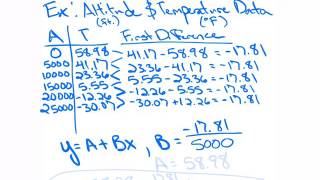 Ex: Altitude & Temperature Data
(ft.) (°F)
A T First Difference
0 58.98
5000 41.17 41.17 - 58.98 = -17.81
10000 23.36 23.36 - 41.17 = -17.81
15000 5.55 5.55 - 23.36 = -17.81
20000 -12.26 -12.26 - 5.55 = -17.81
25000 -30.07 -30.07 + 12.26 = -17.81
y = A + Bx, B = -17.81 / 5000
A = 58.98
17.81